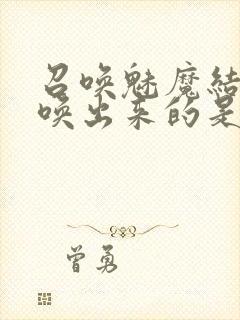 召唤魅魔结
唤出来的是
曾勇